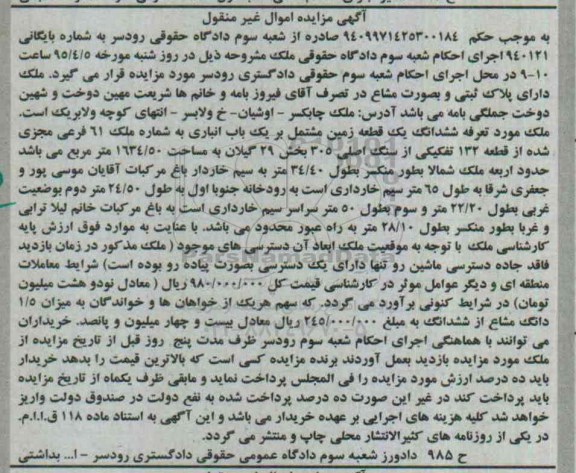 آگهی مزایده اموال غیر منقول
به موجب حکم ۹۴۰۹۹۷۱۴۲۵۳۰۰۱۸۴ صادره از شعبه سوم دادگاه حقوقی رودسر به شماره بایگانی
۹۴۰۱۲۱ اجرای احکام شعبه سوم حقوقی ملک مشروحه ذیل در روز شنبه مورخه ۹۵/۴/۵ ساعت
۹-۱۰ در محل اجرای احکام شعبه سوم حقوقی دادگستری رودسر مورد مزایده قرار می گیرد. ملک
دارای پلاک ثبتی و بصورت مشاع در تصرف آقای فیروز بامه و خانم ها شریعت مهین دوخت و شهین
دوخت جملگی بامه می باشد آدرس: ملک چابکسر - اوشیان- خ ولابسر - انتهای کوچه ولابریک است.
ملک مورد تعرفه ششدانگ یک قطعه زمین مشتمل بر یک باب انباری به شماره ملک ۶۱ فرعی مجزی
شده از قطعه ۱۳۲ تفکیکی از سنگ اصلی ۳۰۵ بخش ۲۹ گیلان به مساحت ۱۶۳۴/۵۰ متر مربع می باشد
حدود اربعه ملک شمالا بطور منکسر بطول ۳۴/۴۰ متر به سیم خاردار باغ مرکبات آقایان موسی پور و
جعفری شرقا به طول ۶۵ متر سیم خارداری است به رودخانه جنوبا اول به طول ۲۴/۵۰ متر دوم بوضعیت
غربی بطول ۲۲/۲۰ متر و سوم بطول ۵۰ متر سراسر سیم خارداری است به باغ مرکبات خانم لیلا ترابی
و غربا بطور منکسر بطول ۲۸/۱۰ متر به راه عبور محدود می باشد. با عنایت به موارد فوق ارزش پایه
کارشناسی ملک با توجه به موقعیت ملک ابعاد آن دسترسی های موجود ( ملک مذکور در زمان بازدید
فاقد جاده دسترسی ماشین رو تنها دارای یک دسترسی بصورت پیاده رو بوده است) شرایط معاملات
منطقه ای و دیگر عوامل موثر در کارشناسی قیمت کل ۹۸۰/۰۰۰/۰۰۰ ریال ( معادل نودو هشت میلیون
تومان) در شرایط کنونی برآورد می گردد. که سهم هریک از خواهان ها و خواندگان به میزان ۱/۵
دانگ مشاع از ششدانگ به مبلغ ۲۴۵/۰۰۰/۰۰۰ ریال معادل بیست و چهار میلیون و پانصد. خریداران
می توانند با هماهنگی اجرای احکام شعبه سوم رودسر ظرف مدت پنج روز قبل از تاریخ مزایده از
ملک مورد مزایده بازدید بعمل آوردند برنده مزایده کسی است که بالاترین قیمت را بدهد خریدار
باید ده درصد ارزش مورد مزایده را فی المجلس پرداخت نماید و مابقی ظرف یکماه از تاریخ مزایده
باید پرداخت کند در غیر این صورت ده درصد پرداخت شده به نفع دولت در صندوق دولت واریز
خواهد شد کلیه هزینه های اجرایی بر عهده خریدار می باشد و این آگهی به استناد ماده ۱۱۸ ق.ا.ا.م.
در یکی از روزنامه های کثیرالانتشار محلی چاپ و منتشر می گردد.
ح ۹۸۵ دادورز شعبه سوم دادگاه عمومی حقوقی دادگستری رودسر - ا... بداشتی